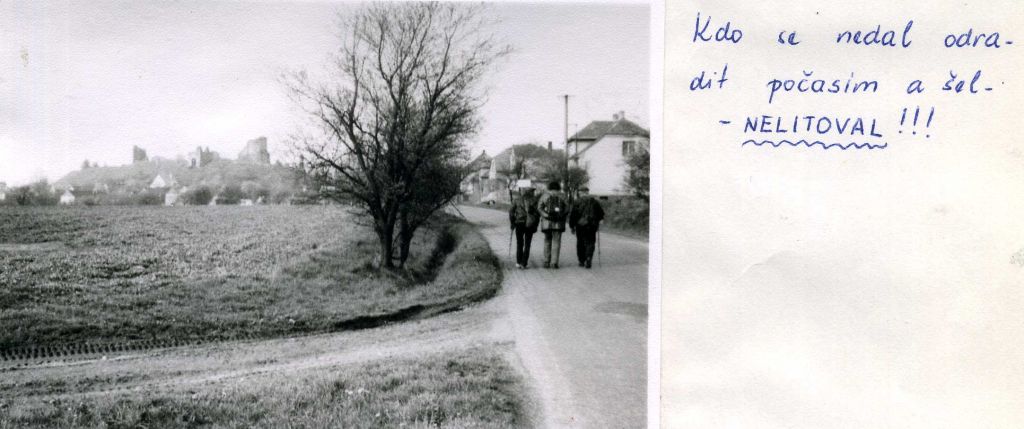 Kdo se nedal odra-
dit počasím a šel-
- NELITOVAL !!!